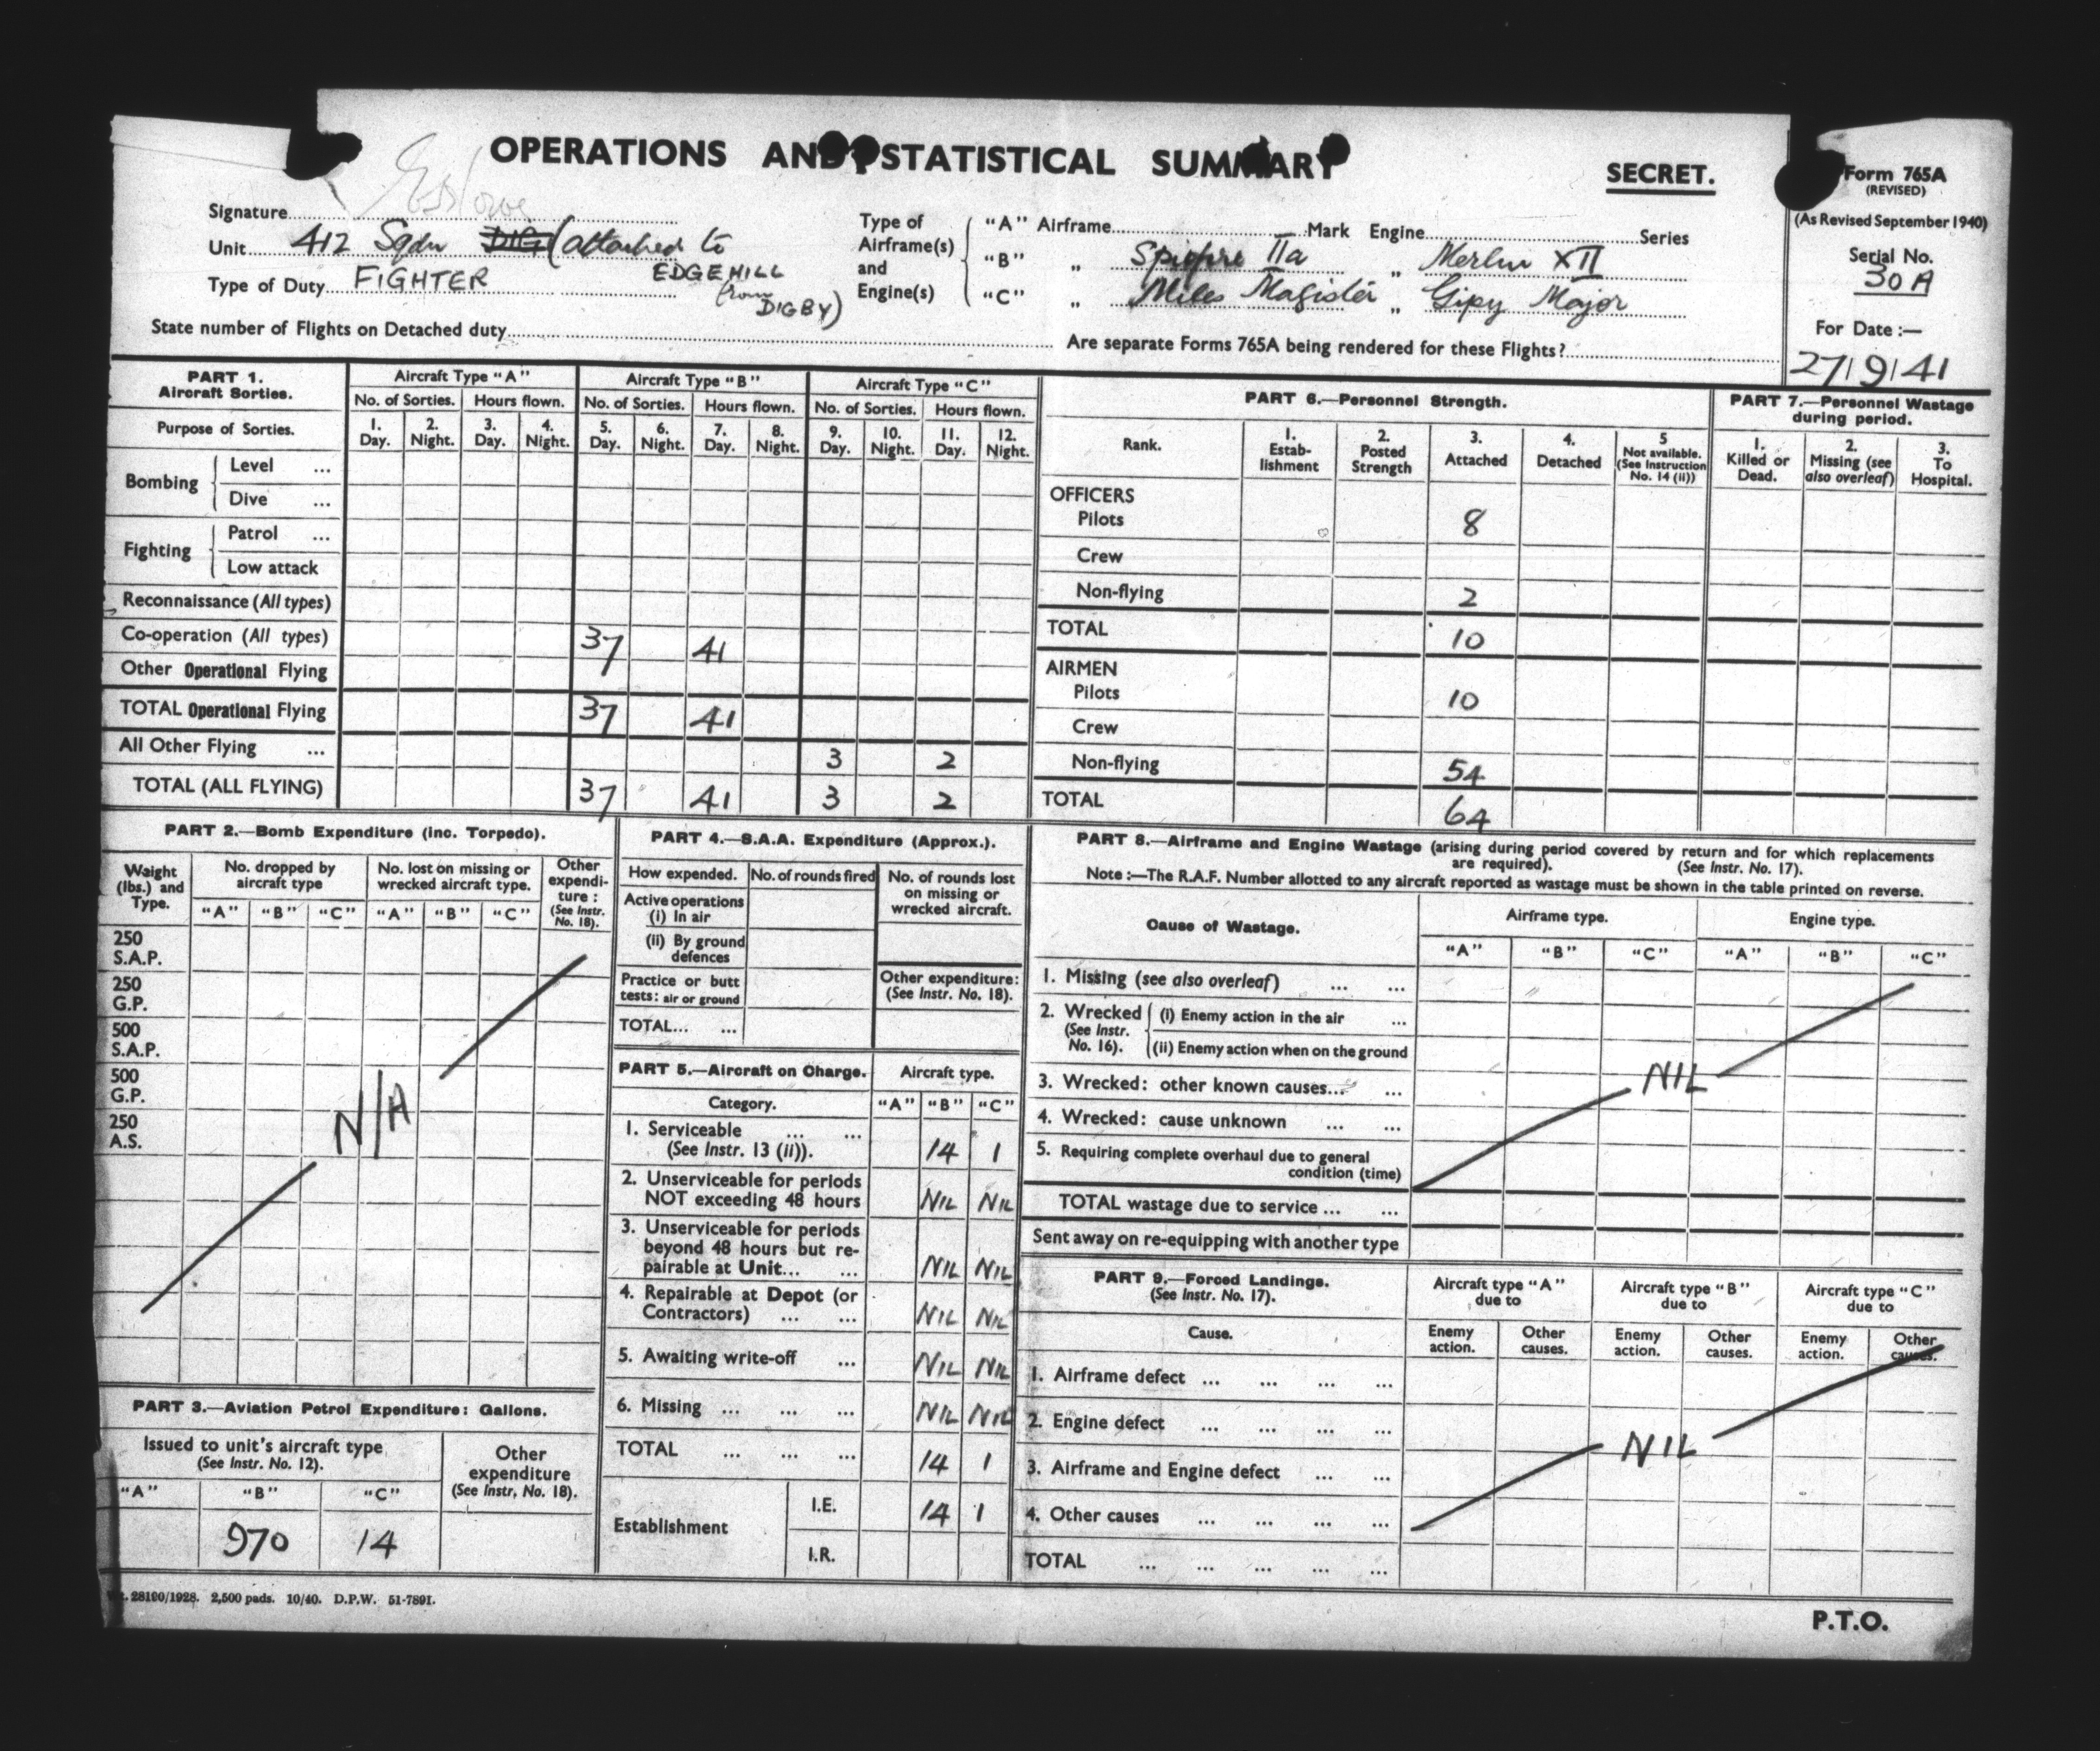 OPERATIONS AND STATISTICAL SUMMARY
SECRET.
Form 765A
(REVISED)
(As Revised September 1940)
Serial No.
30A
For Date :—
27/9/41
Signature
Unit 412 Sqdn DIG (attached to
EDGEHILL
from
DIGBY)
Type of Duty FIGHTER
State number of Flights on Detached duty
Type of
Airframe(s)
and
Engine(s)
"A" Airframe Mark Engine Series
"B" „ Spitfire IIa „ Merlin XII
"C" „ Miles Magister „ Gipy Major
Are separate Forms 765A being rendered for these Flights?
PART 1.
Aircraft Sorties.
Aircraft Type "A" Aircraft Type "B" Aircraft Type "C"
No. of Sorties. Hours flown. No. of Sorties. Hours flown. No. of Sorties. Hours flown.
Purpose of Sorties.
1. Day. 2. Night. 3. Day. 4. Night. 5. Day. 6. Night. 7. Day. 8. Night. 9. Day. 10. Night. 11. Day. 12. Night.
Bombing
Level ...
Dive ...
Fighting
Patrol ...
Low attack
Reconnaissance (All types)
Co-operation (All types) 37 41
Other Operational Flying
TOTAL Operational Flying 37 41
All Other Flying ... 3 2
TOTAL (ALL FLYING) 37 41 3 2
PART 6.—Personnel Strength.
Rank.
1. Estab-
lishment
2. Posted
Strength
3. Attached
4. Detached
5 Not available.
(See Instruction
No. 14 (ii))
OFFICERS
Pilots 8
Crew
Non-flying 2
TOTAL 10
AIRMEN
Pilots 10
Crew
Non-flying 54
TOTAL 64
PART 7.—Personnel Wastage
during period.
1. Killed or
Dead.
2. Missing (see
also overleaf)
3. To
Hospital.
PART 2.—Bomb Expenditure (inc. Torpedo).
Weight
(lbs.) and
Type.
No. dropped by
aircraft type
No. lost on missing or
wrecked aircraft type.
Other
expendi-
ture :
(See Instr.
No. 18).
"A" "B" "C" "A" "B" "C"
250
S.A.P.
250
G.P.
500
S.A.P.
500
G.P.
250
A.S.
N/A
PART 3.—Aviation Petrol Expenditure: Gallons.
Issued to unit's aircraft type
(See Instr. No. 12).
Other
expenditure
(See Instr. No. 18).
"A" "B" "C"
970 14
PART 4.—S.A.A. Expenditure (Approx.).
How expended. No. of rounds fired
No. of rounds lost
on missing or
wrecked aircraft.
Active operations
(i) In air
(ii) By ground
defences
Practice or butt
tests: air or ground
Other expenditure:
(See Instr. No. 18).
TOTAL... ...
PART 5.—Aircraft on Charge. Aircraft type.
Category. "A" "B" "C"
1. Serviceable ... ...
(See Instr. 13 (ii)). 14 1
2. Unserviceable for periods
NOT exceeding 48 hours NIL NIL
3. Unserviceable for periods
beyond 48 hours but re-
pairable at Unit... ... NIL NIL
4. Repairable at Depot (or
Contractors) ... ... NIL NIL
5. Awaiting write-off ... NIL NIL
6. Missing ... ... ... NIL NIL
TOTAL ... ... ... 14 1
Establishment
I.E. 14 1
I.R.
PART 8.—Airframe and Engine Wastage (arising during period covered by return and for which replacements
are required). (See Instr. No. 17).
Note :—The R.A.F. Number allotted to any aircraft reported as wastage must be shown in the table printed on reverse.
Cause of Wastage. Airframe type. Engine type.
"A" "B" "C" "A" "B" "C"
1. Missing (see also overleaf) ... ...
2. Wrecked
(See Instr.
No. 16).
(i) Enemy action in the air ...
(ii) Enemy action when on the ground
3. Wrecked: other known causes... ...
4. Wrecked: cause unknown ... ...
5. Requiring complete overhaul due to general
condition (time)
NIL
TOTAL wastage due to service ... ...
Sent away on re-equipping with another type
PART 9.—Forced Landings.
(See Instr. No. 17).
Aircraft type "A"
due to
Aircraft type "B"
due to
Aircraft type "C"
due to
Cause.
Enemy
action.
Other
causes.
Enemy
action.
Other
causes.
Enemy
action.
Other
causes.
1. Airframe defect ... ... ... ...
2. Engine defect ... ... ... ...
NIL
3. Airframe and Engine defect ... ...
4. Other causes ... ... ... ...
TOTAL ... ... ... ...
28190/1928. 2,500 pads. 10/40. D.P.W. 51-7891.
P.T.O.